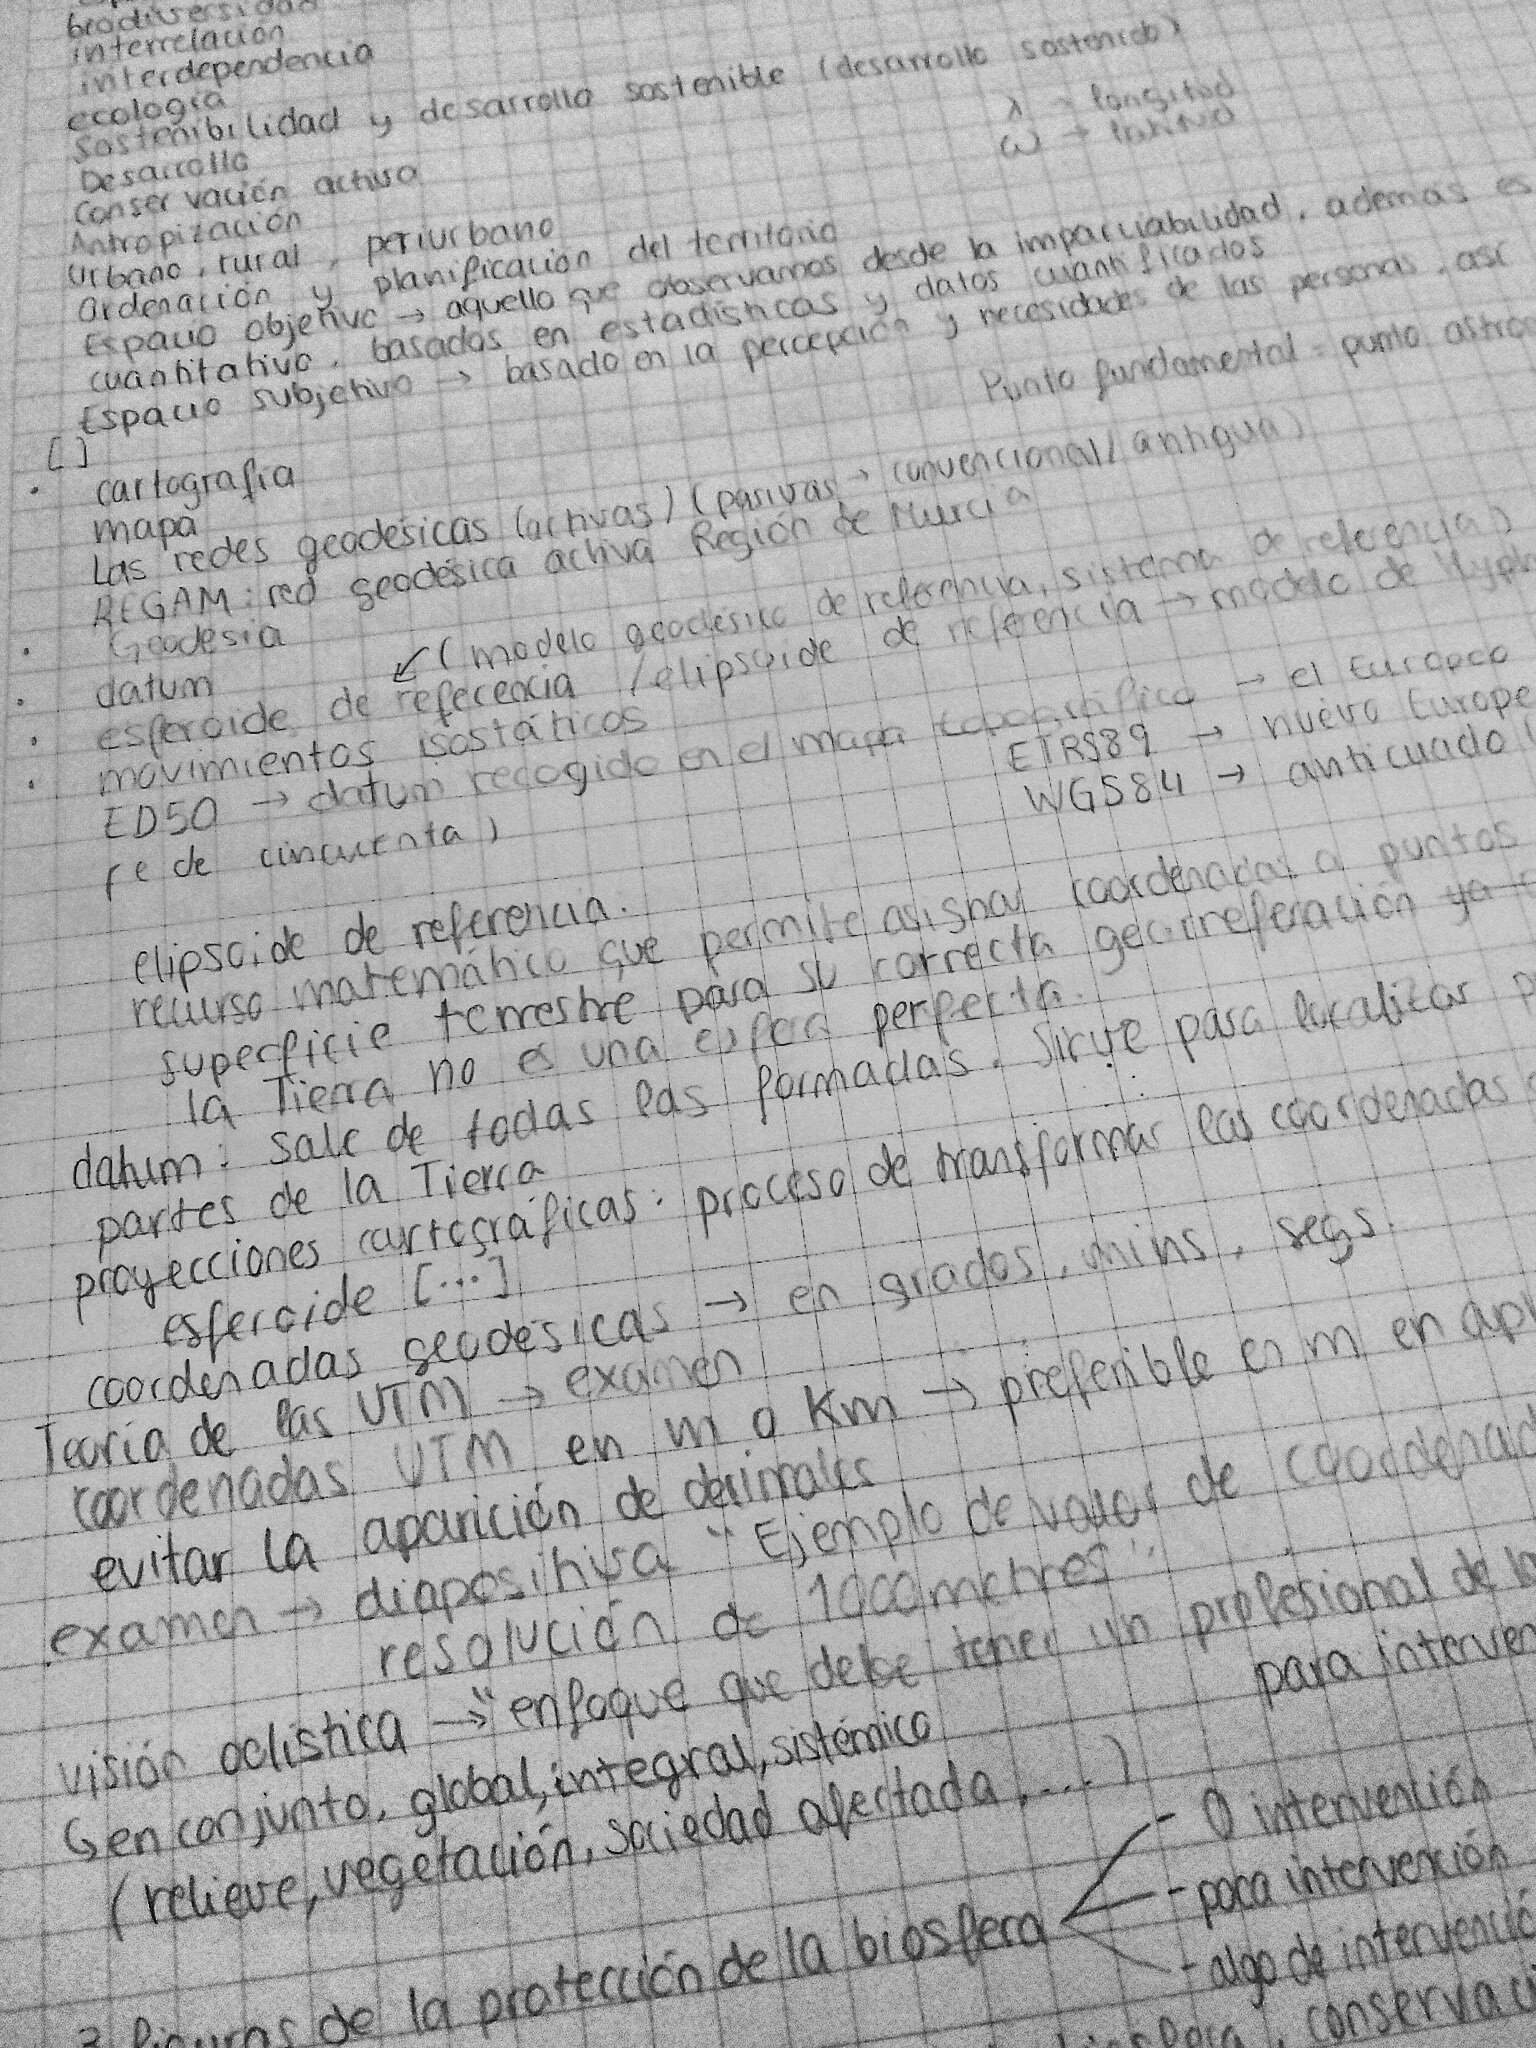 biodiversidad
interrelación
interdependencia
ecología
Sostenibilidad y desarrollo sostenible (desarrollo sostenido)
λ → longitud
Desarrollo
ω → latitud
Conservación activa
Antropización
Urbano, rural, periurbano
Ordenación y planificación del territorio
Espacio objetivo → aquello que observamos desde la imparciabilidad, ademas es
cuantitativo, basados en estadísticas y datos cuantificados
Espacio subjetivo → basado en la percepción y necesidades de las personas, así
Punto fundamental = punto
[ ]
· cartografía
mapa
Las redes geodésicas (activas) (pasivas → convencional/antigua)
REGAM: red geodésica activa Región de Murcia
· Geodesia
· datum ↙ (modelo geodésico de referencia, sistema de referencia)
· esferoide de referencia / elipsoide de referencia → modelo de
· movimientos isostáticos
ED50 → datum recogido en el mapa topográfico → el Europeo
(e de cincuenta)
ETRS89 → nuevo Europe
WGS84 → anticuado
elipsoide de referencia.
recurso matemático que permite asignar coordenadas a puntos
superficie terrestre para su correcta georreferación ya
la Tierra no es una esfera perfecta.
datum: sale de todas las formadas. Sirve para localizar
partes de la Tierra
proyecciones cartográficas: proceso de transformar las coordenadas
esferoide [...]
coordenadas geodésicas → en grados, mins, segs.
Teoría de las UTM → examen
coordenadas UTM en m o Km → preferible en m en
evitar la aparición de decimales
examen → diapositiva "Ejemplo de valor de coordenad
resolución de 1000 metres"
visión oclística → "enfoque que debe tener un profesional de la
↳ en conjunto, global, integral, sistémico
para interven
(relieve, vegetación, sociedad afectada, ....)
3 figuras de la protección de la biosfera
- 0 intervención
- poca intervención
- algo de intervenció
biosfera, conservaci